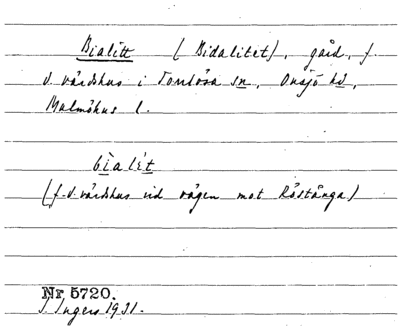 Bialitt (Bidalitet), gård, f.
d. värdshus i Torrlösa sn, Onsjö hd,
Malmöhus l.
bialit
(f.d. värdshus vid vägen mot Röstånga)
Nr 5720.
I. Ingers 1931.